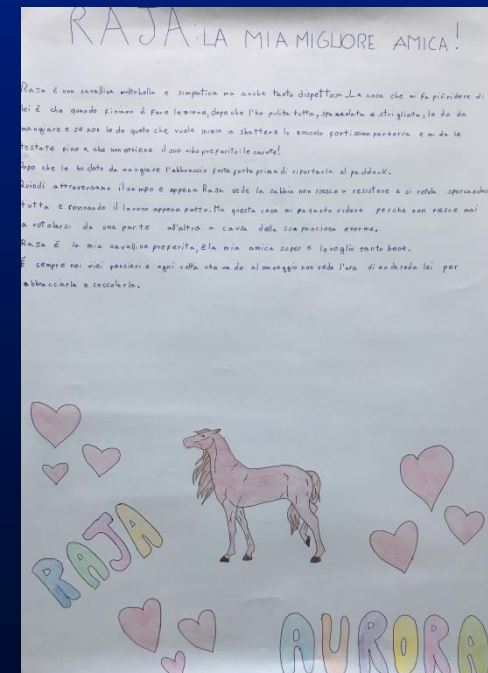 RAJA: LA MIA MIGLIORE AMICA!
Raja è una cavallina molto bella e simpatica ma anche tanto dispettosa. La cosa che mi fa più ridere di
lei è che quando finiamo di fare lezione, dopo che l'ho pulita tutta, spazzolata e strigliata, le do da
mangiare e se non le do quello che vuole inizia a sbattere lo zoccolo fortissimo per terra e mi da le
testate fino a che non ottiene il suo cibo preferito: le carote!
Dopo che le ho dato da mangiare l'abbraccio forte forte prima di riportarla al paddock.
Quindi attraversiamo il campo e appena Raja vede la sabbia non riesce a resistere e si rotola sporcandosi
tutta e rovinando il lavoro appena fatto. Ma questa cosa mi fa tanto ridere perchè non riesce mai
a rotolarsi da una parte all'altra a causa della sua panciona enorme.
Raja è la mia cavallina preferita, è la mia amica super e le voglio tanto bene.
È sempre nei miei pensieri e ogni volta che vado al maneggio non vedo l'ora di andare da lei per
abbracciarla e coccolarla.
RAJA
AURORA